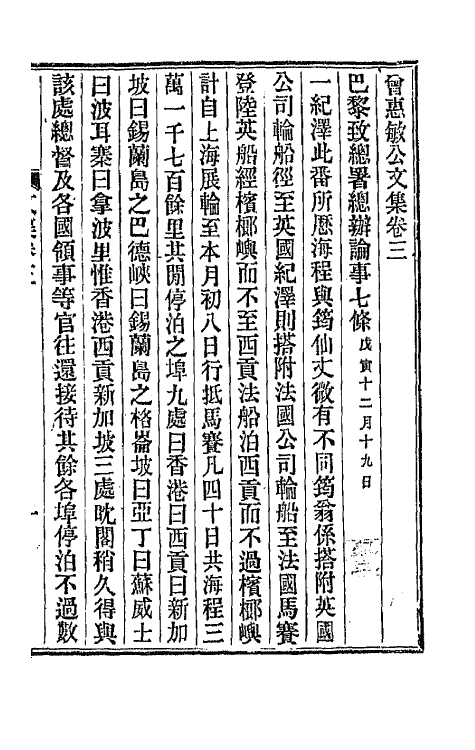 曾惠敏公文集卷三
巴黎致總署總辦論事七條戊寅十二月十九日
一紀澤此番所歷海程與筠仙丈微有不同筠翁係搭附英國
公司輪船徑至英國紀澤則搭附法國公司輪船至法國馬賽
登陸英船經檳榔嶼而不至西貢法船泊西貢而不過檳榔嶼
計自上海展輪至本月初八日行抵馬賽凡四十日共海程三
萬一千七百餘里其閒停泊之埠九處曰香港曰西貢曰新加
坡曰錫蘭島之巴德峽曰錫蘭島之格崙坡曰亞丁曰蘇威士
曰波耳寨曰拿波里惟香港西貢新加坡三處眈閣稍久得與
該處總督及各國領事等官往還接待其餘各埠停泊不過數